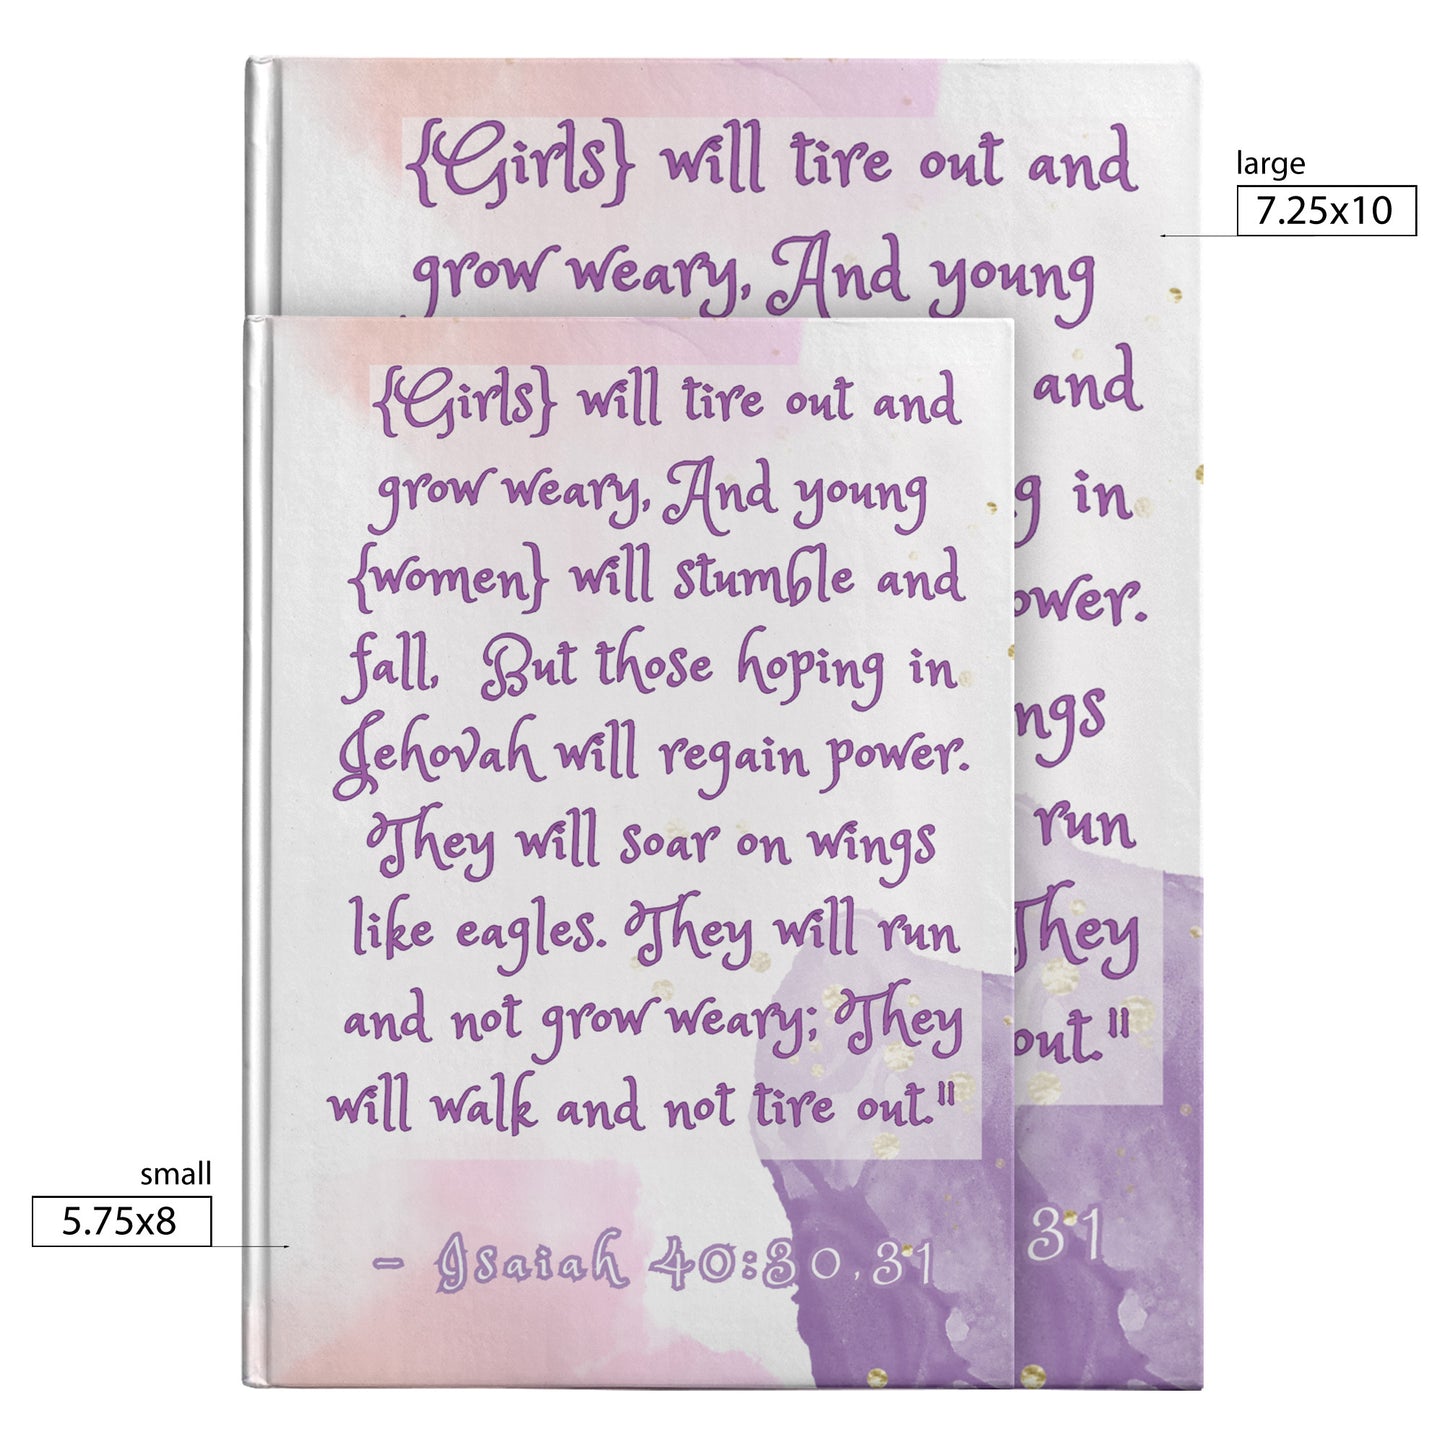 {Girls} will tire out and
grow weary, And young
and
g in
ower.
ngs
run
They
out."
31
large
7.25x10
{Girls} will tire out and
grow weary, And young
{women} will stumble and
fall, But those hoping in
Jehovah will regain power.
They will soar on wings
like eagles. They will run
and not grow weary; They
will walk and not tire out."
- Isaiah 40:30,31
small
5.75x8